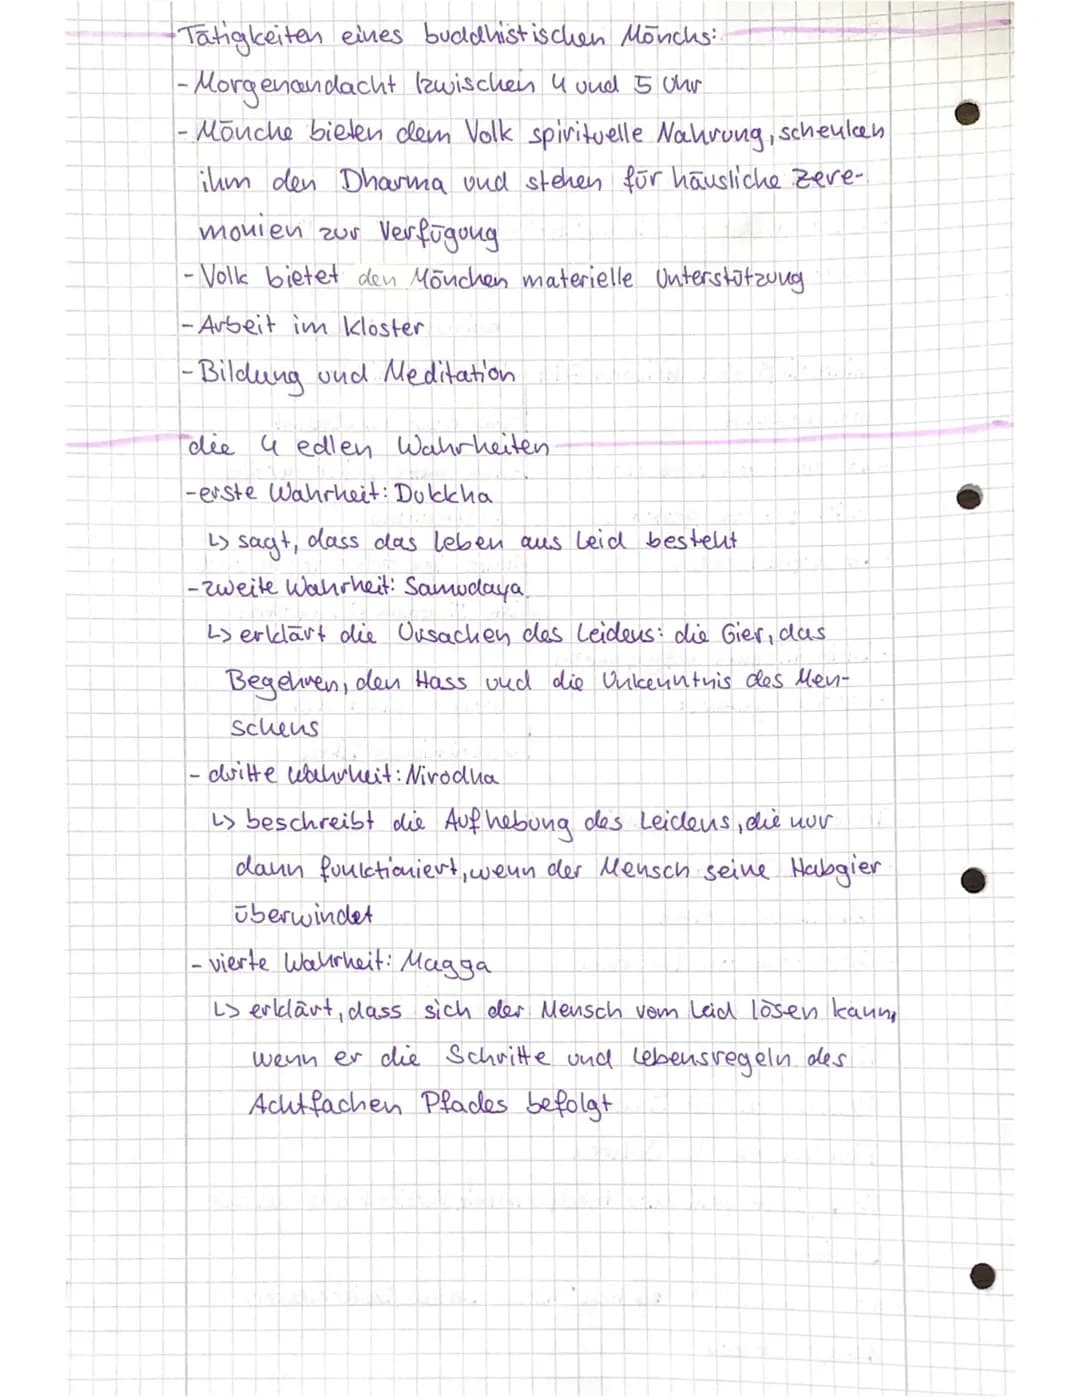 Tätigkeiten eines buddhistischen Mönchs:
- Morgenandacht (zwischen 4 und 5 Uhr
- Mönche bieten dem Volk spirituelle Nahrung, schenken
ihm den Dharma und stehen für häusliche Zere-
monien zur Verfügung
- Volk bietet den Mönchen materielle Unterstützung
- Arbeit im Kloster
- Bildung und Meditation
die 4 edlen Wahrheiten
- erste Wahrheit: Dukkha
↳ sagt, dass das Leben aus Leid besteht
- zweite Wahrheit: Samudaya
↳ erklärt die Ursachen des Leidens: die Gier, das
Begehren, den Hass und die Unkenntnis des Men-
schens
- dritte Wahrheit: Nirodha
↳ beschreibt die Aufhebung des Leidens, die nur
dann funktioniert, wenn der Mensch seine Habgier
überwindet
- vierte Wahrheit: Magga
↳ erklärt, dass sich der Mensch vom Leid lösen kann,
wenn er die Schritte und Lebensregeln des
Achtfachen Pfades befolgt